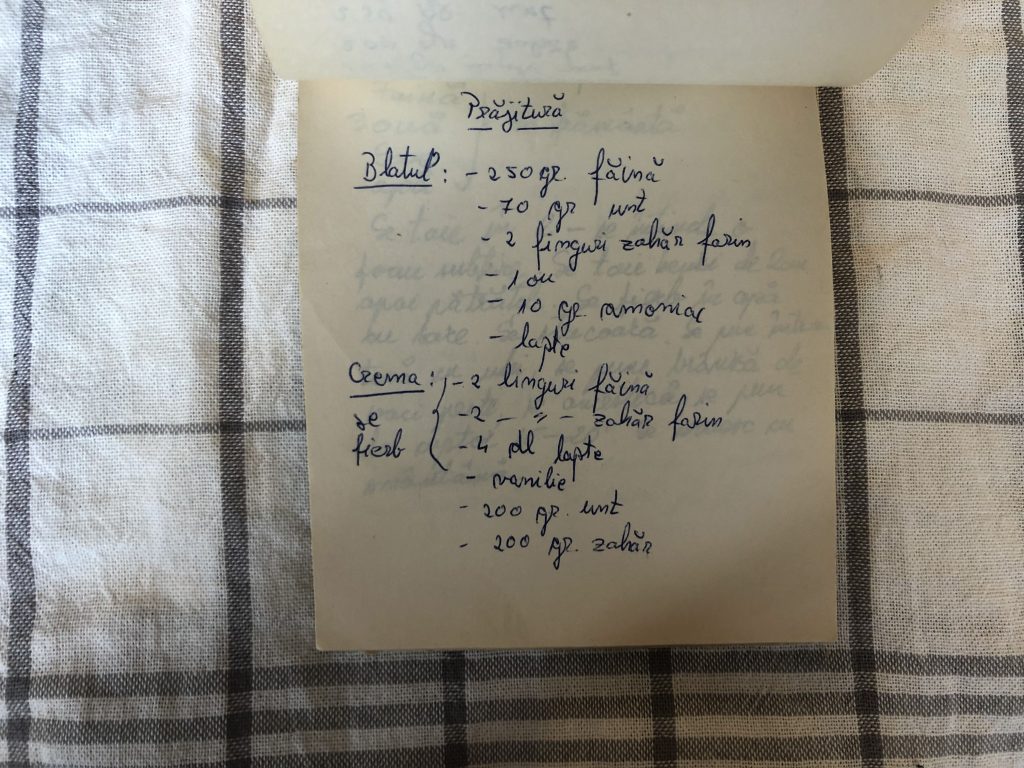 Prăjitură
Blatul: - 250 gr. făină
- 70 gr unt
- 2 linguri zahăr farin
- 1 ou
- 10 gr. amoniac
- lapte
Crema: - 2 linguri făină
se - 2 - " - zahăr farin
fierb - 4 dl lapte
- vanilie
- 200 gr. unt
- 200 gr. zahăr